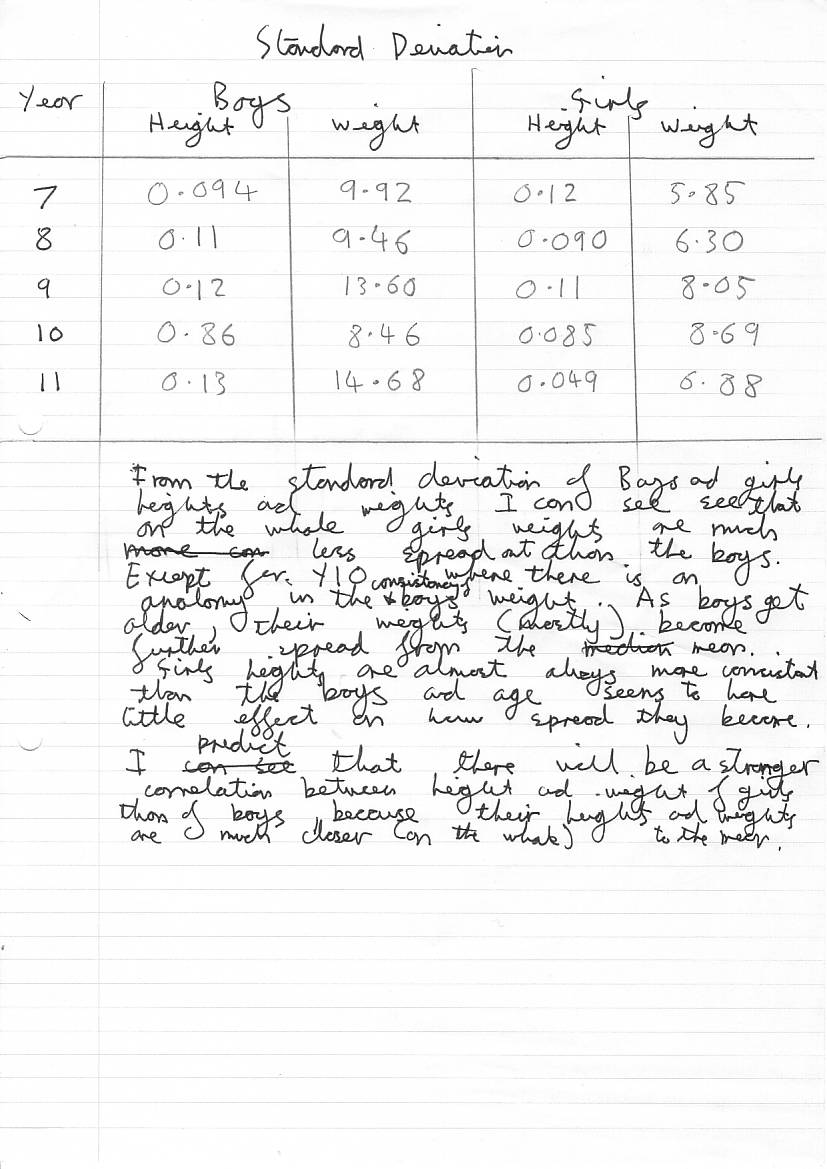 Standard Deviation
Year Boys Girls
Height Weight Height Weight
7 0.094 9.92 0.12 5.85
8 0.11 9.46 0.090 6.30
9 0.12 13.60 0.11 8.05
10 0.86 8.46 0.085 8.69
11 0.13 14.68 0.049 6.88
From the standard deviation of Boys ad girls
heights ad weights I can see see that
on the whole girls weights are much
less spread out than the boys.
Except for Y10 where there is an
consistancy
anolomy in the boys weight. As boys get
older, their weights (mostly) become
further spread from the median mean.
Girls heights are almost always more consistant
than the boys ad age seems to have
little effect on how spread they become.
predict
I can see that there will be a stronger
correlation between height ad weight of girls
than of boys because their heights ad weights
are much closer (on the whole) to the mean.